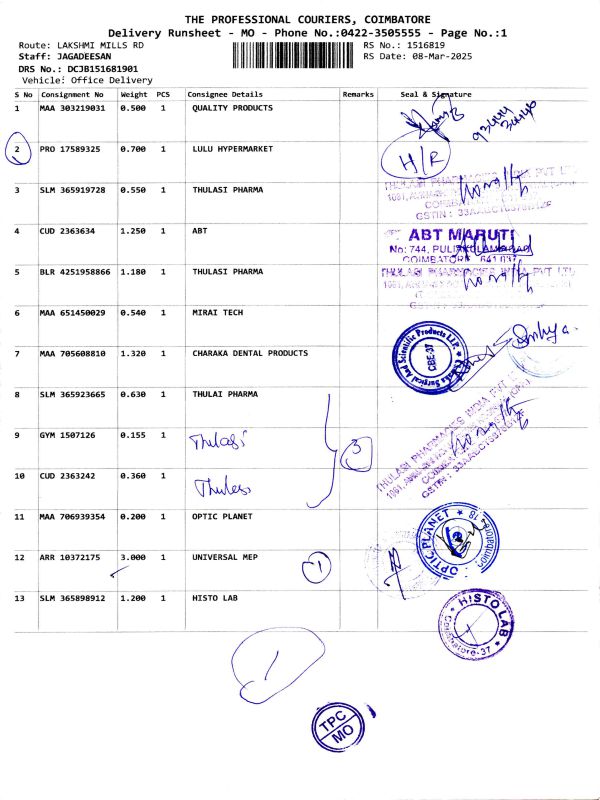 THE PROFESSIONAL COURIERS, COIMBATORE
Delivery Runsheet - MO - Phone No.:0422-3505555 - Page No.:1
Route: LAKSHMI MILLS RD RS No.: 1516819
Staff: JAGADEESAN RS Date: 08-Mar-2025
DRS No.: DCJB151681901
Vehicle: Office Delivery
S No Consignment No Weight PCS Consignee Details Remarks Seal & Signature
1 MAA 303219031 0.500 1 QUALITY PRODUCTS
2 PRO 17589325 0.700 1 LULU HYPERMARKET H/R
3 SLM 365919728 0.550 1 THULASI PHARMA
THULASI PHARMACIES INDIA PVT LTD
4 CUD 2363634 1.250 1 ABT
ABT MARUTI
No: 744, PULIAKULAM ROAD
COIMBATORE 641 037
5 BLR 4251958866 1.180 1 THULASI PHARMA
THULASI PHARMACIES INDIA PVT LTD
6 MAA 651450029 0.540 1 MIRAI TECH
7 MAA 705608810 1.320 1 CHARAKA DENTAL PRODUCTS
Surgical And Scientific Products LLP.
CBE-37
8 SLM 365923665 0.630 1 THULAI PHARMA
THULASI PHARMACIES INDIA PVT
9 GYM 1507126 0.155 1 Thulasi 3
10 CUD 2363242 0.360 1 Thulasi
11 MAA 706939354 0.200 1 OPTIC PLANET
OPTIC PLANET
Coimbatore - 18
12 ARR 10372175 3.000 1 UNIVERSAL MEP 1
13 SLM 365898912 1.200 1 HISTO LAB
HISTO LAB
Coimbatore-37
1
TPC
MO